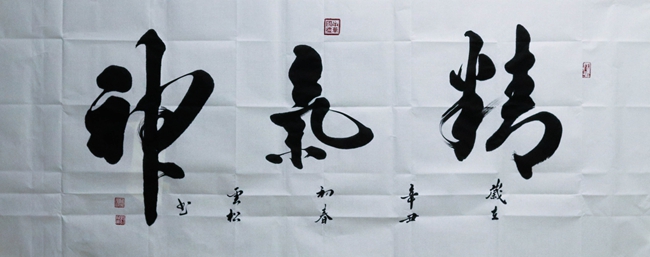 精氣神
歲在
辛丑
初春
雲松
书